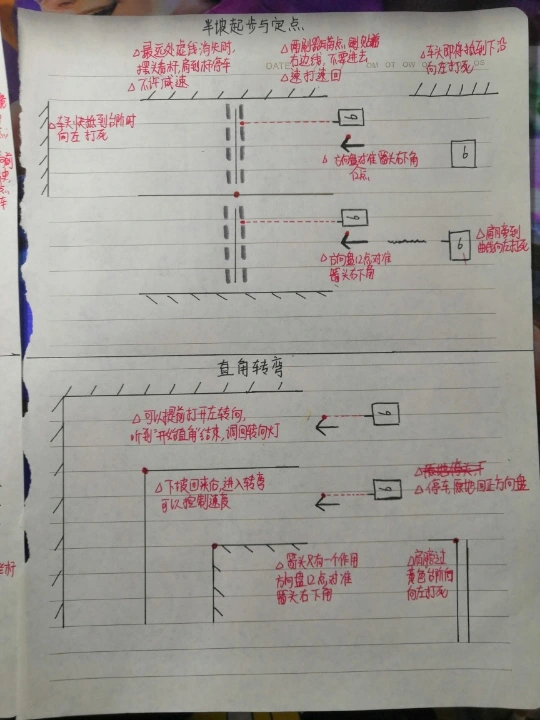 半坡起步与定点
△最远处虚线消失时,
摆头看杆,肩到杆停车
△不许减速
△两刷器
右边线,不要进去
△速打速回
△车头即将抵到下沿
向左打死
DATE
△车头快抵到台阶时
向左打死
△方向盘对准箭头右下角
12点
△方向盘12点对准
箭头右下角
△肩膀到
曲线向左打死
直角转弯
△可以提前打开左转向,
听到"开始直角"结束,调回转向灯
△下坡回来后,进入转弯
可以控制速度
△停车,
回正方向盘
△箭头只有一个作用
方向盘12点对准
箭头右下角
△肩膀过
黄色台阶向
向左打死